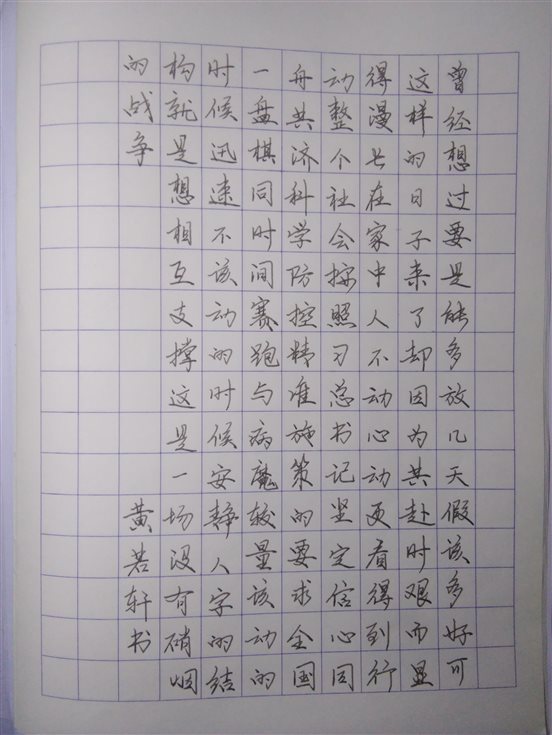 曾经想过要是能多放几天假该多好可
这样的日子来了却因为共赴时艰而显
得漫长在家中人不动心动更看得到行
动整个社会按照习总书记坚定信心同
舟共济科学防控精准施策的要求全国
一盘棋同时间赛跑与病魔较量该动的
时候迅速不该动的时候安静人字的结
构就是想相互支撑这是一场没有硝烟
的战争
黄若轩书